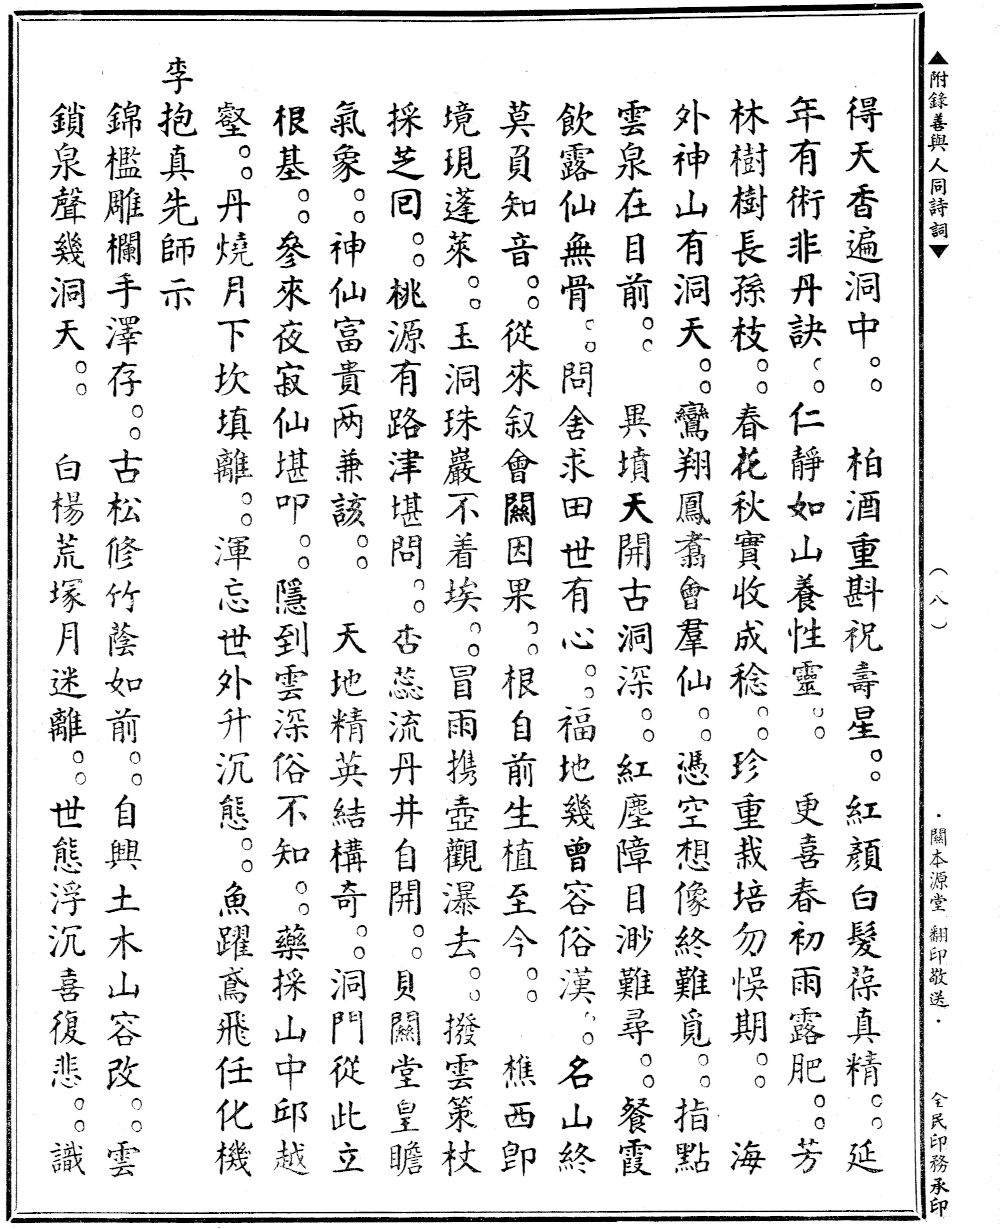 ▲附錄善與人同詩詞▼
（八）
·關本源堂 翻印敬送·
全民印務承印
得天香遍洞中。。　柏酒重斟祝壽星。。紅顏白髮葆真精。。延
年有術非丹訣。。仁靜如山養性靈。。　更喜春初雨露肥。。芳
林樹樹長孫枝。。春花秋實收成稔。。珍重栽培勿悞期。。　海
外神山有洞天。。鸞翔鳳翥會羣仙。。憑空想像終難覓。。指點
雲泉在目前。。　異墳天開古洞深。。紅塵障目渺難尋。。餐霞
飲露仙無骨。。問舍求田世有心。。福地幾曾容俗漢。。名山終
莫負知音。。從來叙會關因果。。根自前生植至今。。　樵西卽
境現蓬萊。。玉洞珠巖不着埃。。冒雨携壺觀瀑去。。撥雲策杖
採芝囘。。桃源有路津堪問。。杏蕊流丹井自開。。貝闕堂皇瞻
氣象。。神仙富貴两兼該。。　天地精英結構奇。。洞門從此立
根基。。參來夜寂仙堪叩。。隱到雲深俗不知。。藥採山中邱越
壑。。丹燒月下坎填離。。渾忘世外升沉態。。魚躍鳶飛任化機
李抱真先師示
錦檻雕欄手澤存。。古松修竹蔭如前。。自興土木山容改。。雲
鎖泉聲幾洞天。。　白楊荒塚月迷離。。世態浮沉喜復悲。。識